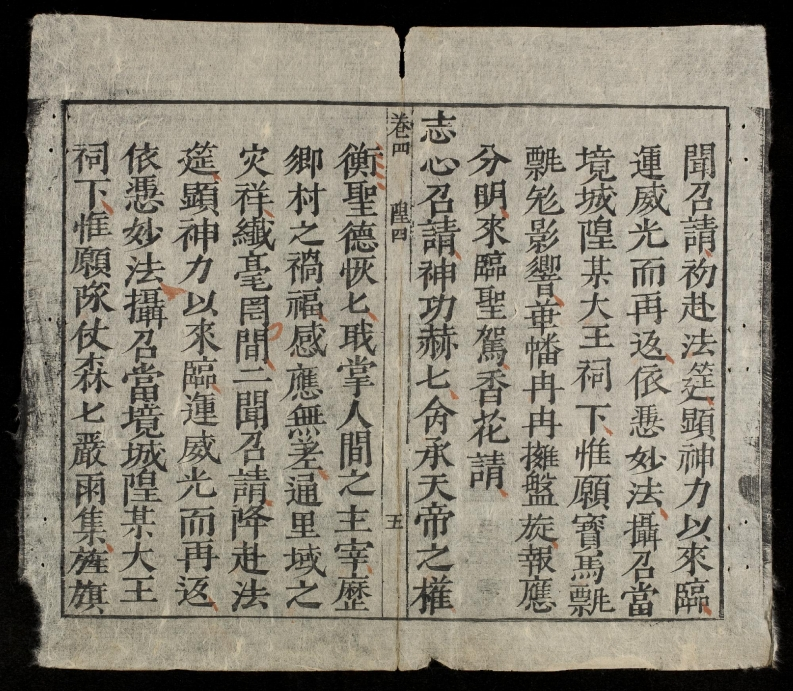 聞召請初赴法筵顯神力以來臨
運威光而再返依憑妙法攝召當
境城隍某大王祠下惟願寶馬飄
飄兔影響華幡冉冉擁盤旋報應
分明來臨聖駕香花請
志心召請神功赫匕命承天帝之權
卷四 隍四 五
衡聖德恢匕職掌人間之主宰歷
鄉村之禍福感應無差通里域之
灾祥纖毫罔間二聞召請降赴法
筵顯神力以來臨運威光而再返
依憑妙法攝召當境城隍某大王
祠下惟願隊仗森匕嚴雨集旌旗